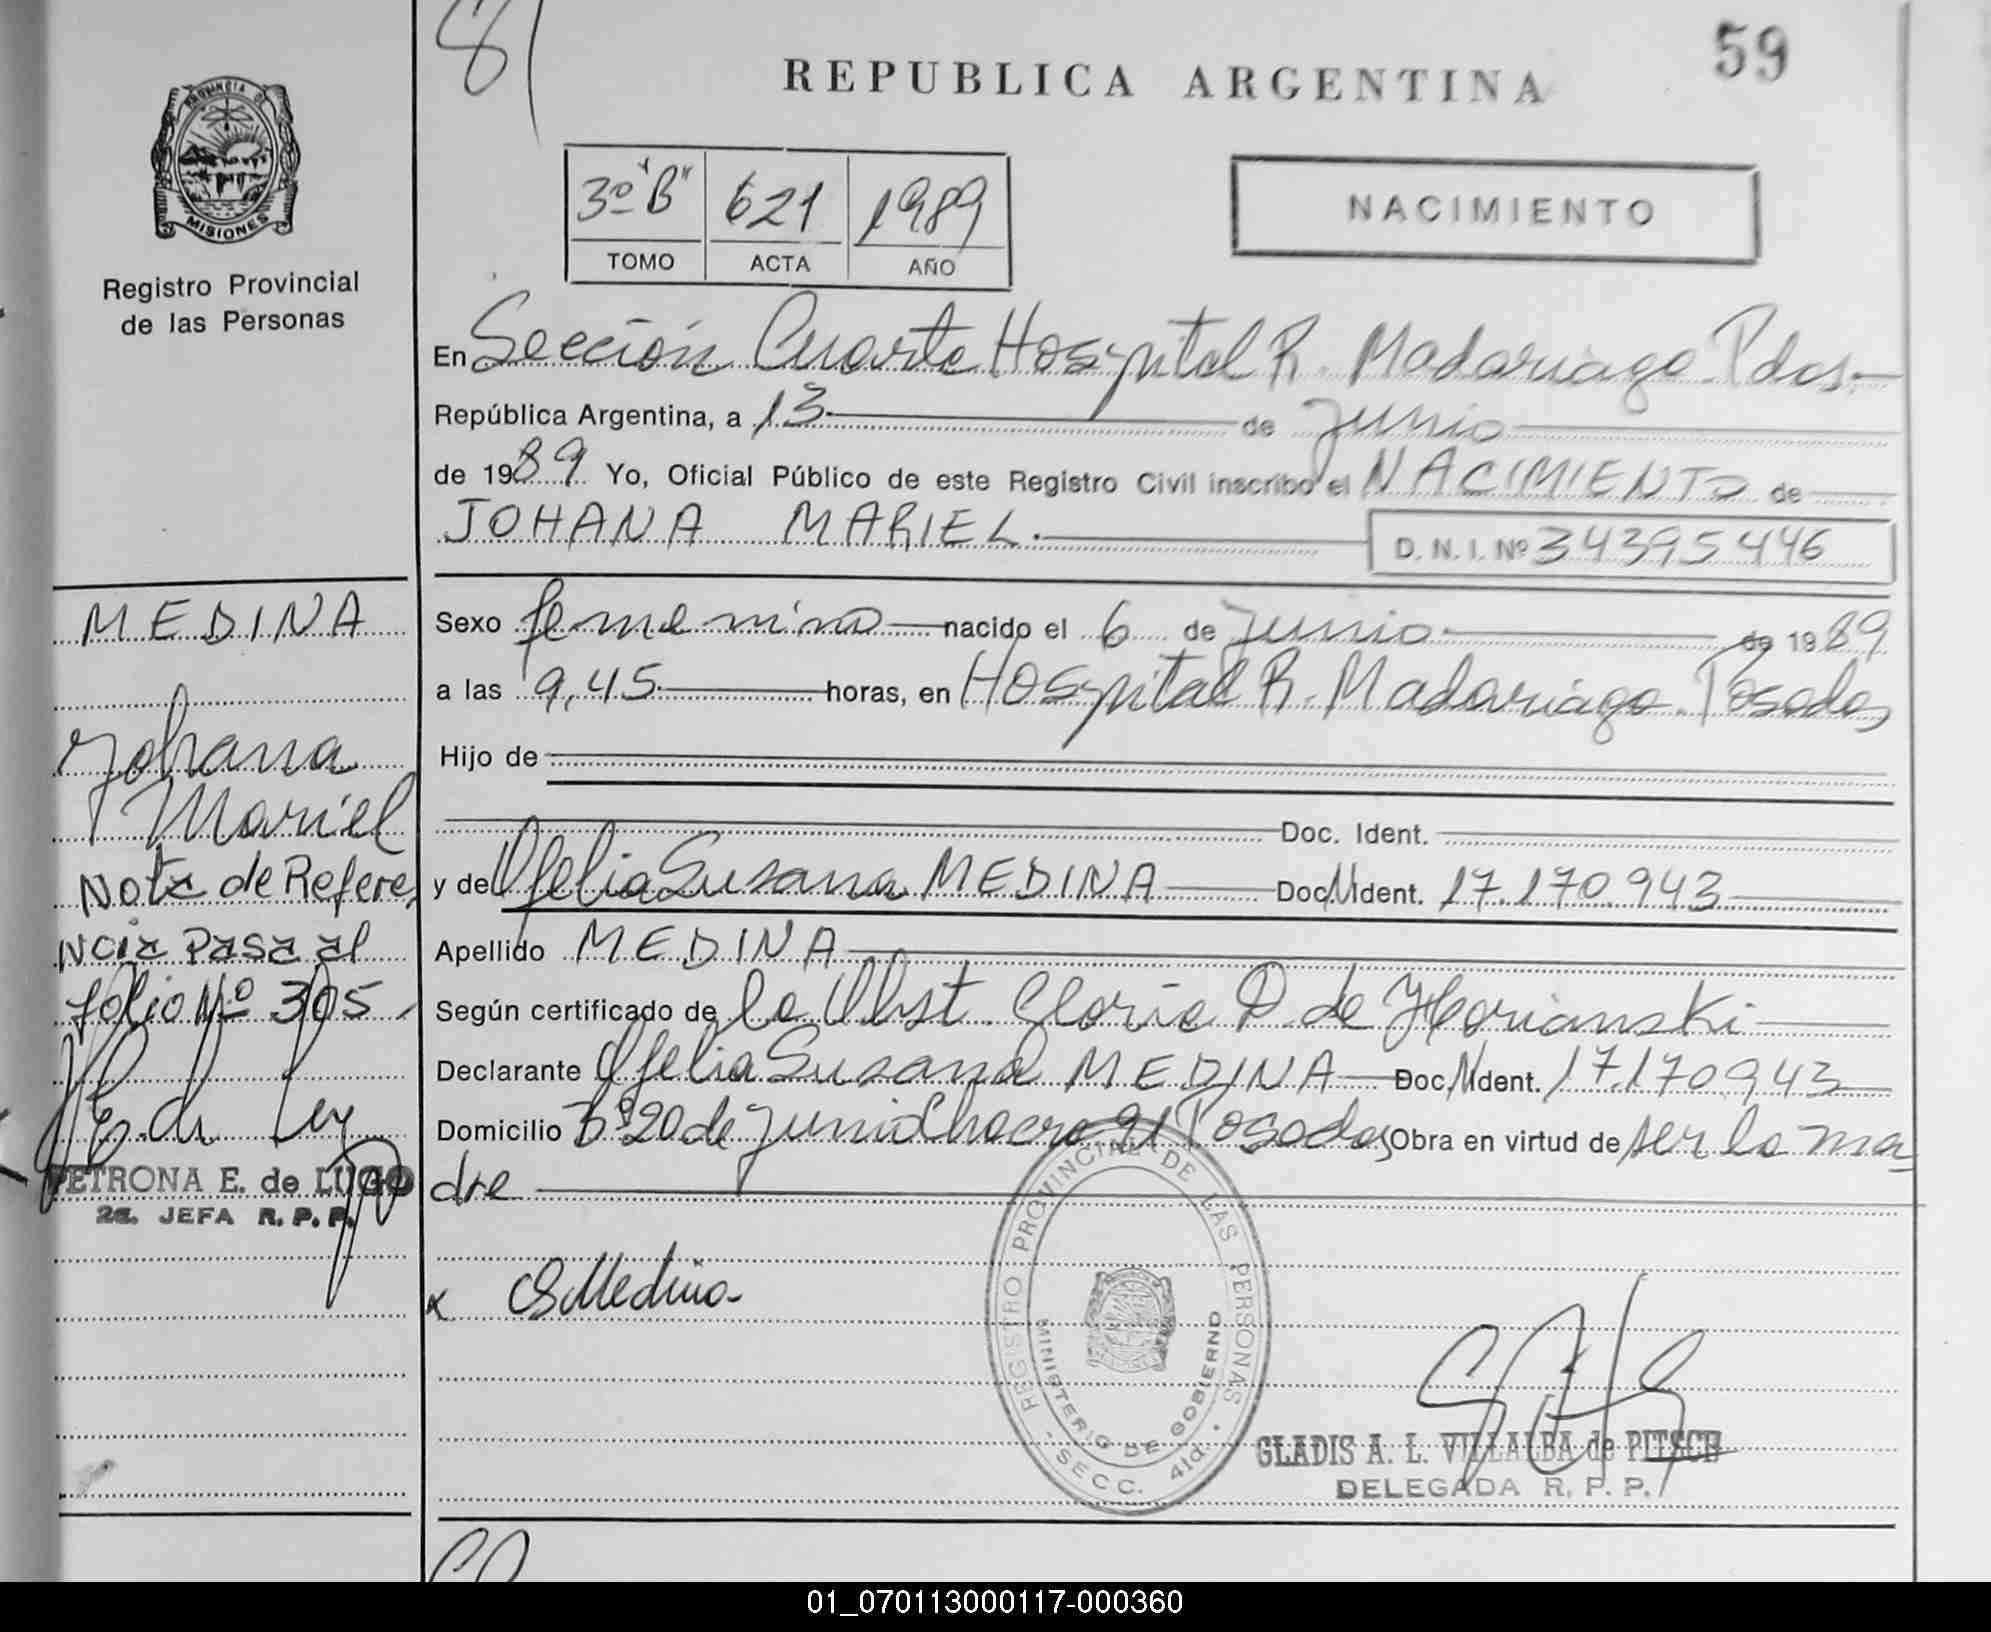 81
59
REPUBLICA ARGENTINA
PROVINCIA DE
MISIONES
Registro Provincial
de las Personas
3º "B" 621 1989
TOMO ACTA AÑO
NACIMIENTO
En Sección Cuarta Hospital R. Madariaga Pdas.
República Argentina, a 13 de Junio
de 1989 Yo, Oficial Público de este Registro Civil inscribo el NACIMIENTO de
JOHANA MARIEL. D. N. I. Nº 34395446
Sexo femenino nacido el 6 de Junio de 1989
a las 9,45 horas, en Hospital R. Madariaga. Posadas
Hijo de
Doc. Ident.
y de Ofelia Susana MEDINA Doc. N Ident. 17.170.943
Apellido MEDINA
Según certificado de la Obst. Gloria D. de
Declarante Ofelia Susana MEDINA Doc. N Ident. 17.170943
Domicilio Bº 20 de Junio Chacra 91 Posadas Obra en virtud de ser la ma
dre
x OSMedina
REGISTRO PROVINCIAL DE LAS PERSONAS
MINISTERIO DE GOBIERNO
- SECC. 4ta. -
GLADIS A. L. VILLALBA de PITSCH
DELEGADA R. P. P.
MEDINA
Johana
Mariel
Nota de Refere
ncia Pasa al
folio Nº 305
PETRONA E. de LUGO
2a. JEFA R. P. P.
01_070113000117-000360